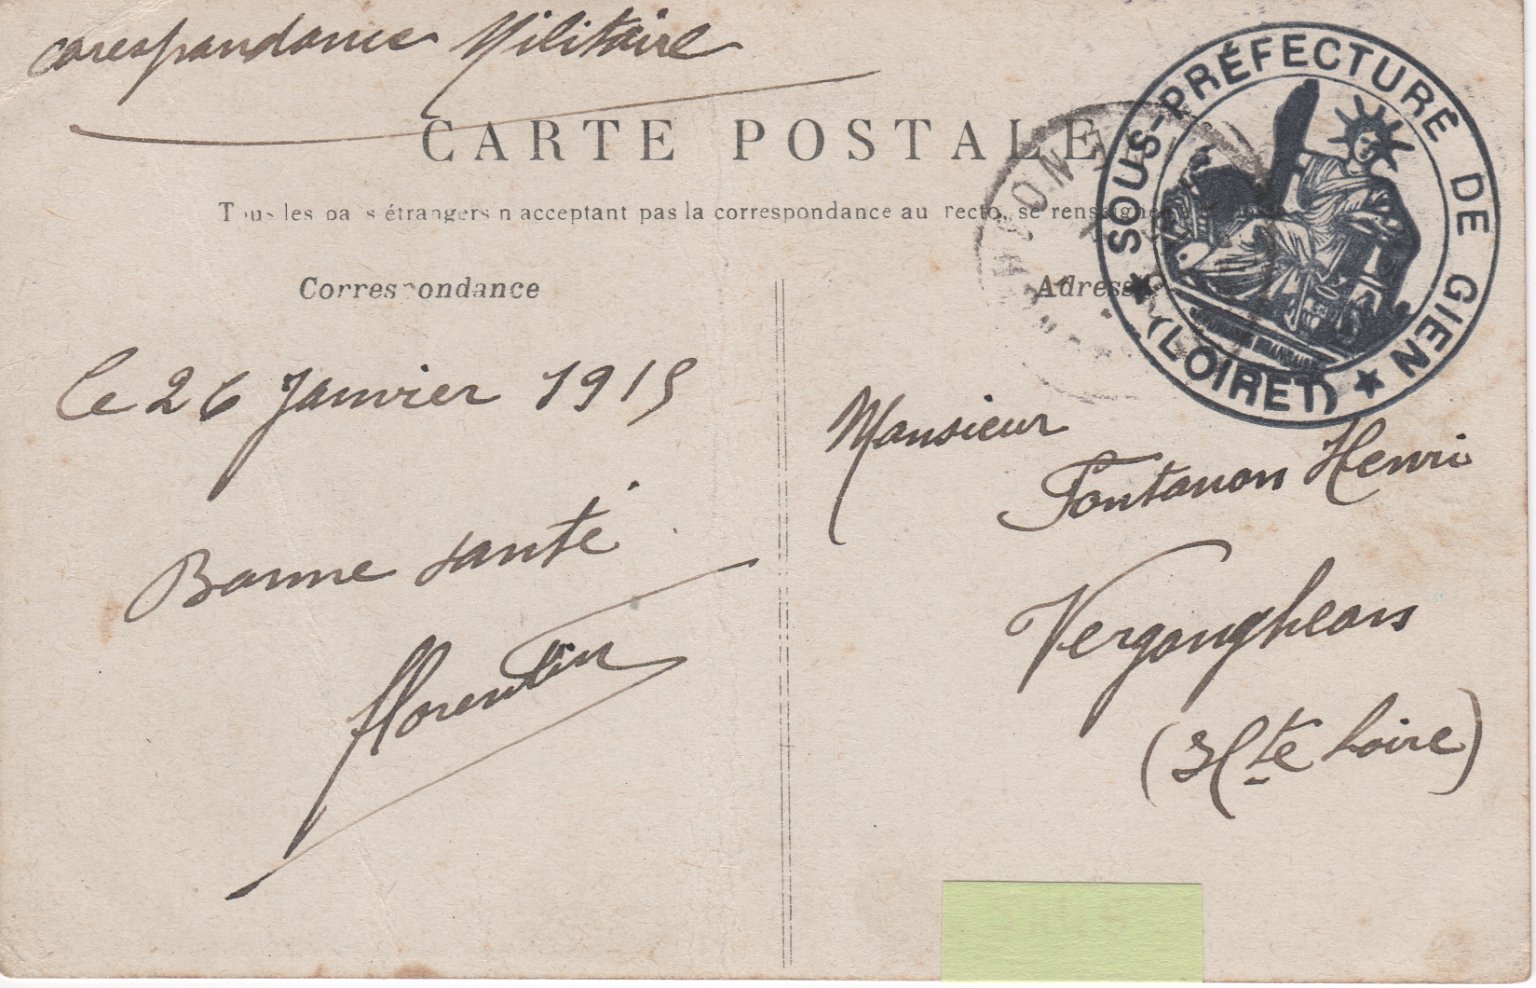 corespondance Militaire
CARTE POSTALE
Tous les pa s étrangers n'acceptant pas la correspondance au recto, se renseigner
Correspondance
Adresse
SOUS-PRÉFECTURE DE GIEN
(LOIRET)
le 26 Janvier 1915
Bonne santé
florentin
Monsieur
Fontanon Henri
Vergongheon
(Hte Loire)